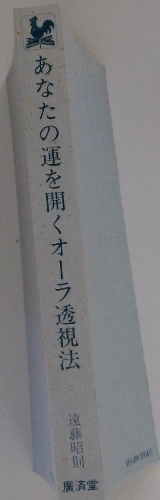 あなたの運を開くオーラ透視法
遠藤昭則
廣済堂